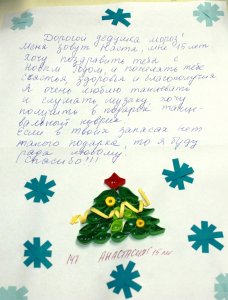 Дорогой дедушка мороз!
Меня зовут Настя, мне 15 лет
Хочу поздравить тебя с
Новым годом, и пожелать тебе
счастья, здоровья и благополучия
Я очень люблю танцевать
и слушать музыку, хочу
получить в подарок танце-
вальный коврик
если в твоих запасах нет
такого подарка, то я буду
рада любому
Спасибо!!!
АНАСТАСИЯ 15 лет